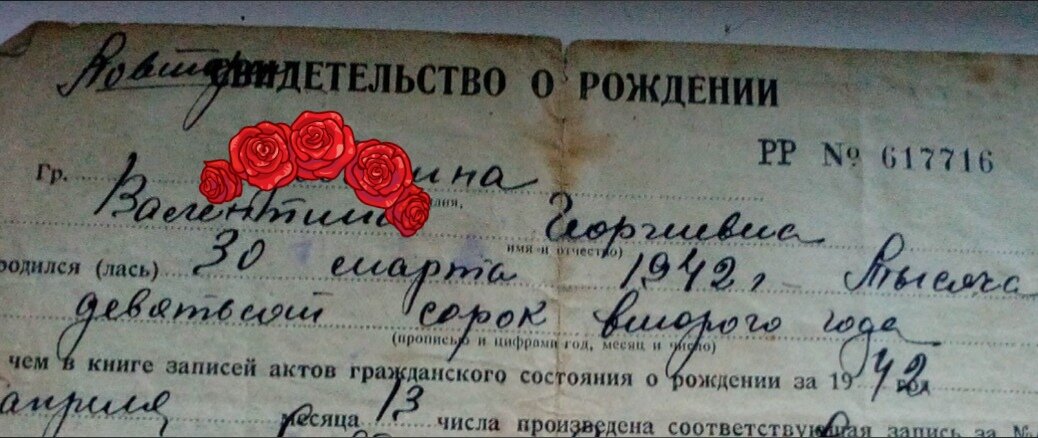 Повторн СВИДЕТЕЛЬСТВО О РОЖДЕНИИ
РР № 617716
Гр. ина
Валентина Георгиевна
имя и отчество)
родился (лась) 30 марта 1942 г Тысяча
девятьсот сорок второго года
(прописью и цифрами год, месяц и число)
чем в книге записей актов гражданского состояния о рождении за 1942 год
апреля месяца 13 числа произведена соответствующая запись за №